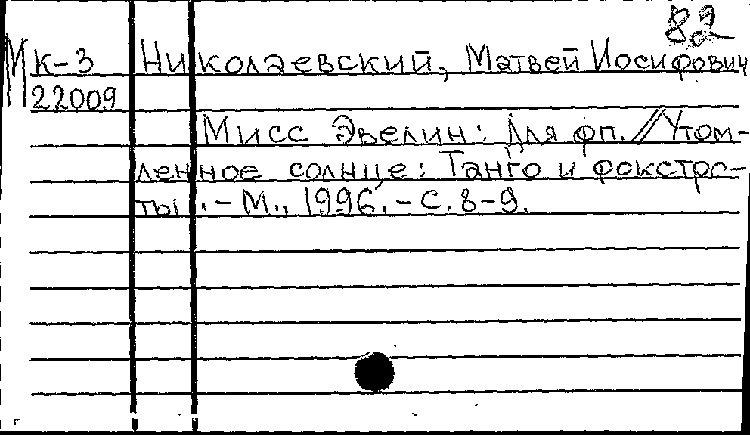 82
МК-3 Николаевский, Матвей Иосифович
22009
Мисс Эвелин: Для фп. // Утом-
ленное солнце: Танго и фокстро-
ты. - М., 1996. - С. 8-9.